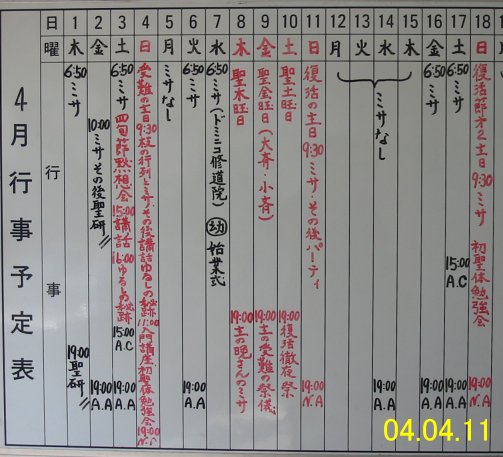 4月行事予定表
日 1 2 3 4 5 6 7 8 9 10 11 12 13 14 15 16 17 18
曜 木 金 土 日 月 火 水 木 金 土 日 月 火 水 木 金 土 日
行事
6:50 ミサ 19:00 聖研〃
10:00 ミサその後聖研〃 19:00 A.A
6:50 ミサ 四旬節黙想会 15:00 講話 16:00 ゆるしの秘跡 15:00 A.C 19:00 A.A
受難の主日 9:30 枝の行列とミサ・その後講話ゆるしの秘跡 11:00 入門講座初聖体勉強会 19:00 N.A
ミサなし
6:50 ミサ 19:00 A.A
7:00 ミサ(ドミニコ修道院) 幼 始業式
聖木曜日 19:00 主の晩さんのミサ
聖金曜日(大斉・小斉) 19:00 主の受難の祭儀
聖土曜日 19:00 復活徹夜祭
復活の主日 9:30 ミサ・その後パーティ 19:00 N.A
ミサなし
19:00 A.A
6:50 ミサ 19:00 A.A
6:50 ミサ 15:00 A.C 19:00 A.A
復活節第2主日 9:30 ミサ 初聖体勉強会 19:00 N.A
04.04.11